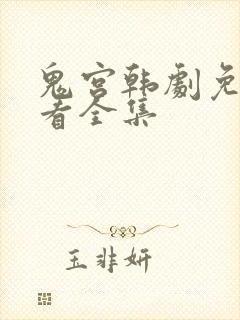 鬼宫韩劇免
看全集
玉非妍